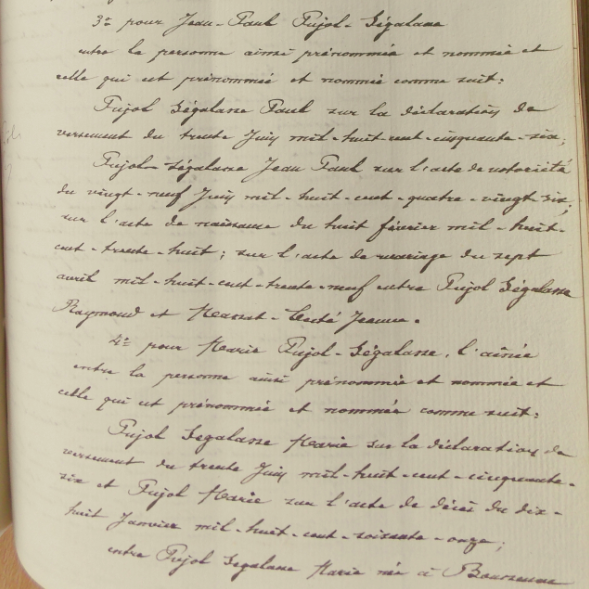 3º pour Jean-Paul Pujol-Ségalasse
entre la personne ainsi prénommée et nommée et
celle qui est prénommée et nommée comme suit:
Pujol Ségalasse Paul sur la déclaration de
versement du trente Juin mil-huit-cent-cinquante-six;
Pujol-Ségalasse Jean Paul sur l'acte de notoriété
du vingt-neuf Juin mil-huit-cent-quatre-vingt six;
sur l'acte de naissance du huit février mil-huit-
cent-trente-huit; sur l'acte de mariage du sept
avril mil-huit-cent-trente-neuf entre Pujol Ségalasse
Raymond et Massat-Berté Jeanne.
4º pour Marie Pujol-Ségalasse, l'aînée
entre la personne ainsi prénommée et nommée et
celle qui est prénommée et nommée comme suit:
Pujol Segalasse Marie sur la déclaration de
versement du trente Juin mil-huit-cent-cinquante-
six et Pujol Marie sur l'acte de décès du dix-
huit Janvier mil-huit-cent-soixante-onze;
entre Pujol Segalasse Marie née à